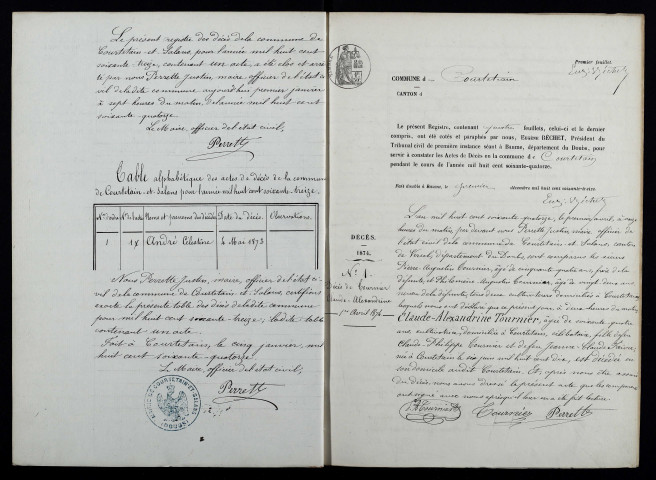 Le présent registre des décès de la commune de
Courtetain et Salans, pour l'année mil huit cent
soixante-treize, contenant un acte, a été clos et arrêté
par nous Perrette Justin, maire, officier de l'état ci-
vil de ladite commune aujourd'hui premier janvier
à sept heures du matin, de l'année mil huit cent
soixante quatorze.
Le Maire, officier de l'état civil,
Perrett
Table alphabétique des actes de décès de la commune
de Courtetain et Salans pour l'année mil huit cent soixante treize.
Nos d'ordre Nos des feuillets Noms et prénoms des décédés Date du décès. Observations.
1 1 André Célestine 4 Mai 1873
Nous Perrette Justin, maire, officier de l'état ci-
vil de la commune de Courtetain et Salans, certifions
exacte la présente table des décès de ladite commune
pour mil huit cent soixante treize; ladite table
contenant un acte.
Fait à Courtetain, le cinq janvier, mil
huit cent soixante quatorze.
Le Maire, officier de l'état civil,
Perrett
MAIRIE DE COURTETAIN ET SALANS
(DOUBS)
Premier feuillet.
COMMUNE d Courtetain
CANTON d
Le présent Registre, contenant quatre feuillets, celui-ci et le dernier
compris, ont été cotés et paraphés par nous, Ernire BÉCHET, Président du
Tribunal civil de première instance séant à Baume, département du Doubs, pour
servir à constater les Actes de Décès en la commune de Courtetain
pendant le cours de l'année mil huit cent soixante-quatorze.
Fait double à Baume, le décembre mil huit cent soixante-treize
DÉCÈS.
1874.
No 1.
Décès de Tournier
Claude-Alexandrine
1er Avril 1874
L'an mil huit cent soixante quatorze, le premier avril, à onze
heures du matin, par devant nous Perrette Justin, maire, officier de
l'état civil de la commune de Courtetain et Salans, canton
de Vercel, département du Doubs, sont comparus les sieurs
Pierre Augustin Tournier, âgé de cinquante quatre ans, frère de la
défunte, et Philomain Augustin Tournier, âgé de vingt deux ans
neveu de la défunte, tous deux cultivateurs domiciliés à Courtetain,
lesquels nous ont déclaré que ce premier jour, à deux heures du matin,
Claude-Alexandrine Tournier, âgée de soixante quatre
ans, cultivatrice, domiciliée à Courtetain, célibataire, fille de feu
Claude Philippe Tournier et de feu Jeanne Claude
née à Courtetain le six juin mil huit cent dix, est décédée en
son domicile audit Courtetain. Et, après nous être assuré
du décès, nous avons dressé le présent acte que les comparants
ont signé avec nous après qu'il leur en a été fait lecture.
Tournier Tournier Perrett